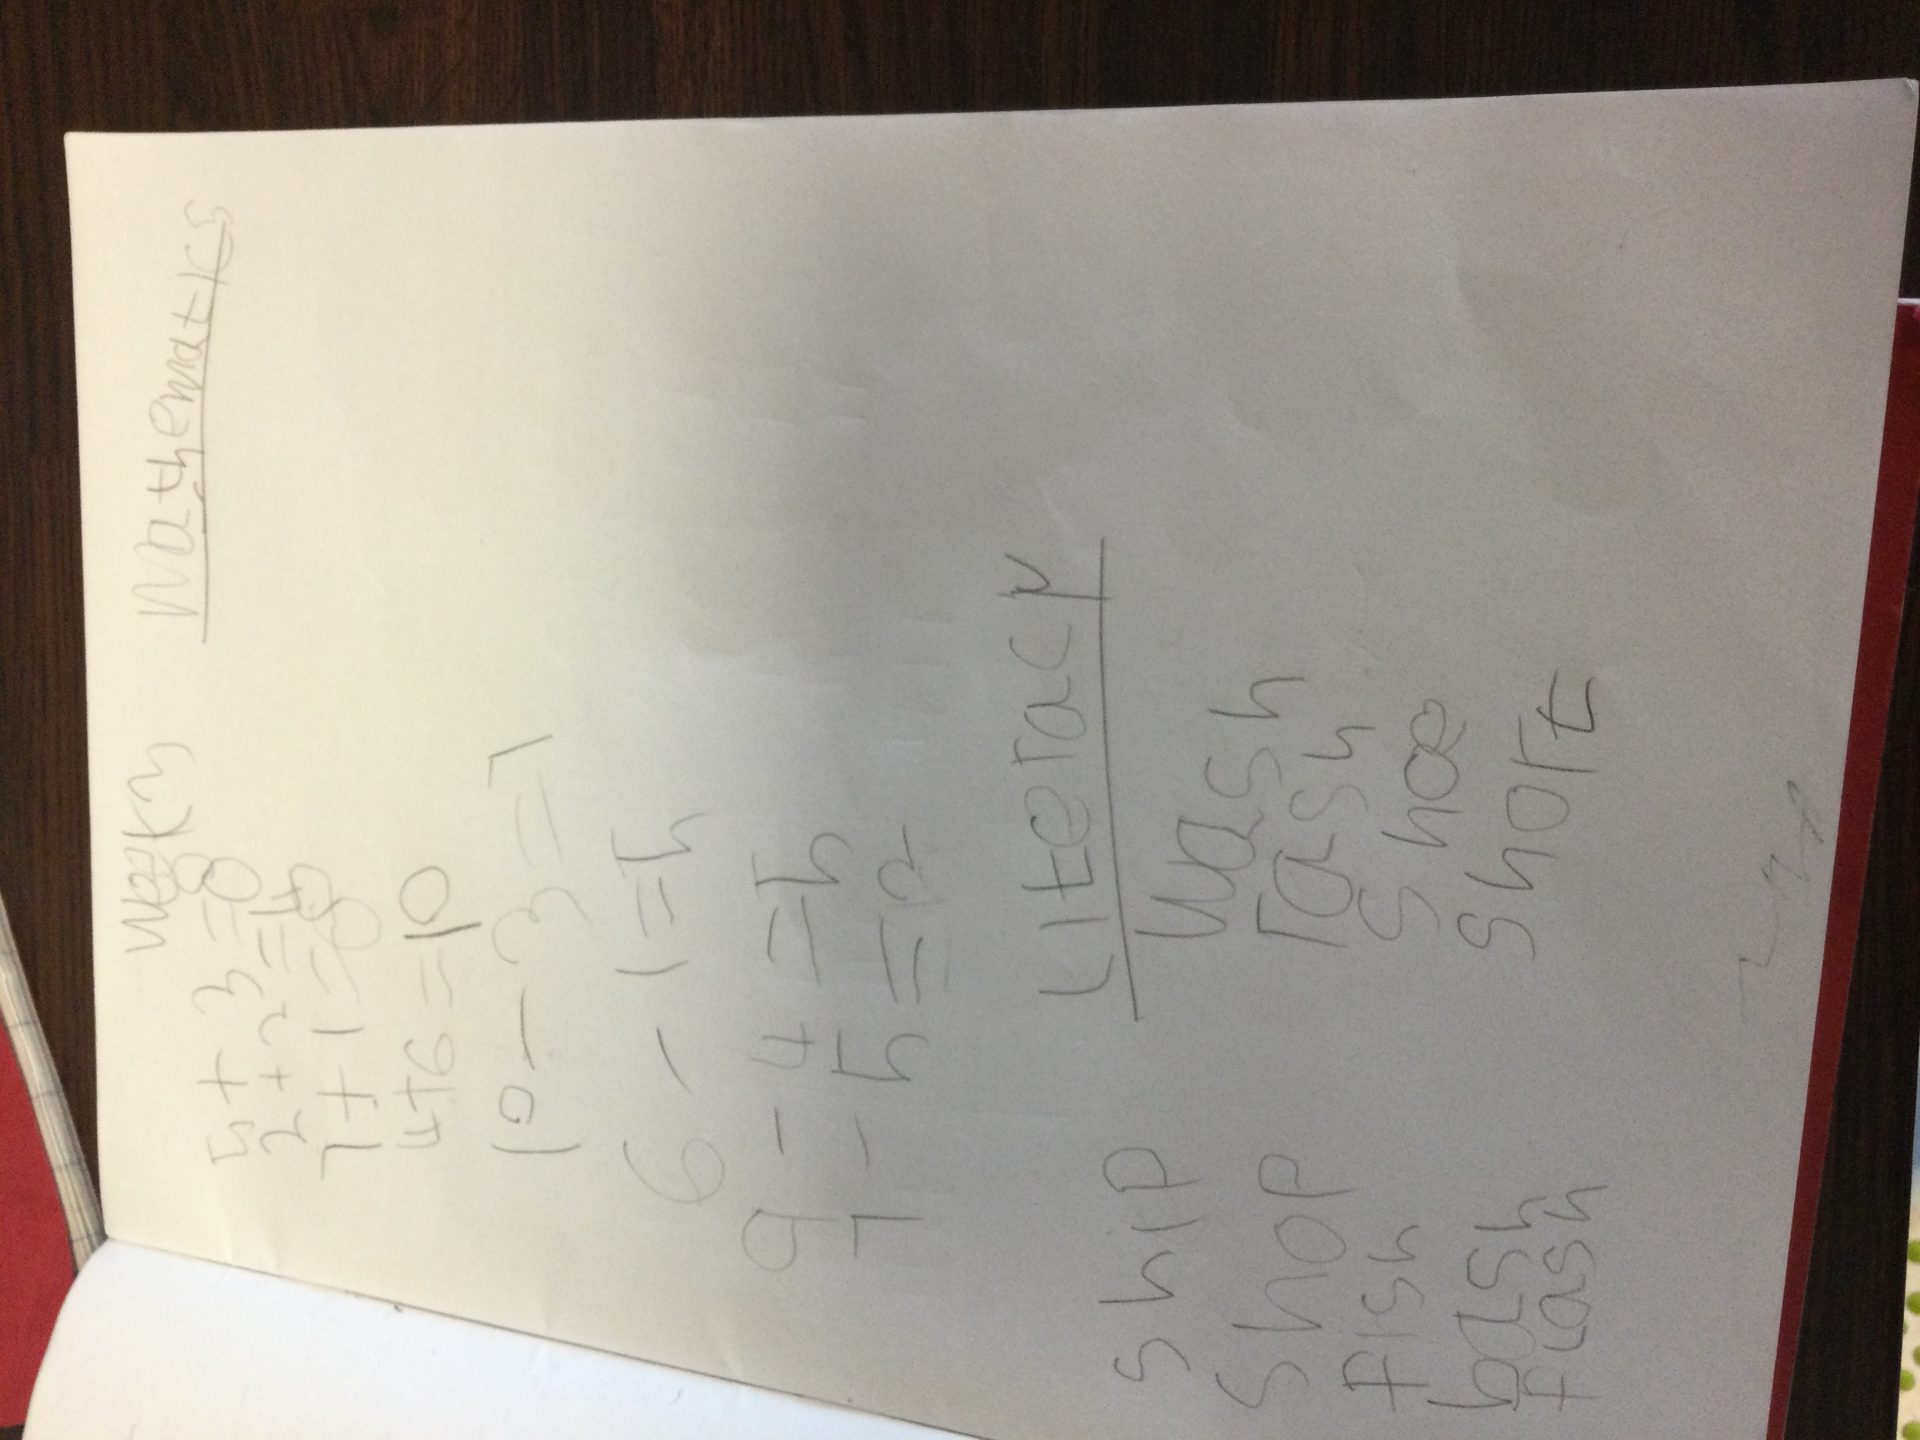 Week 3 Mathematics
5 + 3 = 8
2 + 2 = 4
7 + 1 = 8
4 + 6 = 10
10 - 3 = 7
6 - 1 = 5
9 - 4 = 5
7 - 5 = 2
Literacy
ship wash
shop rash
fish shoe
bash short
flash